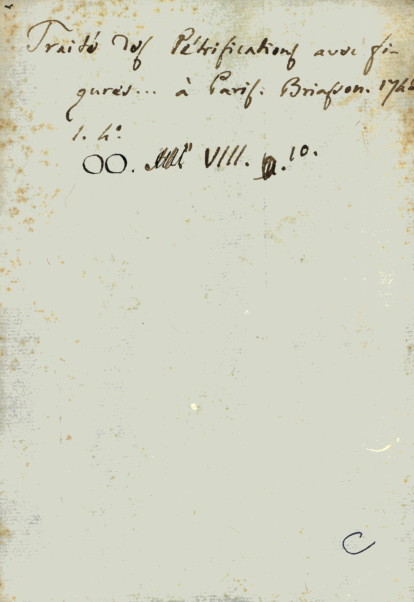 Traité des Pétrifications avec fi-
gures... à Paris. Briasson. 1742
1. 4°
OO. VIII. n. 10.
C